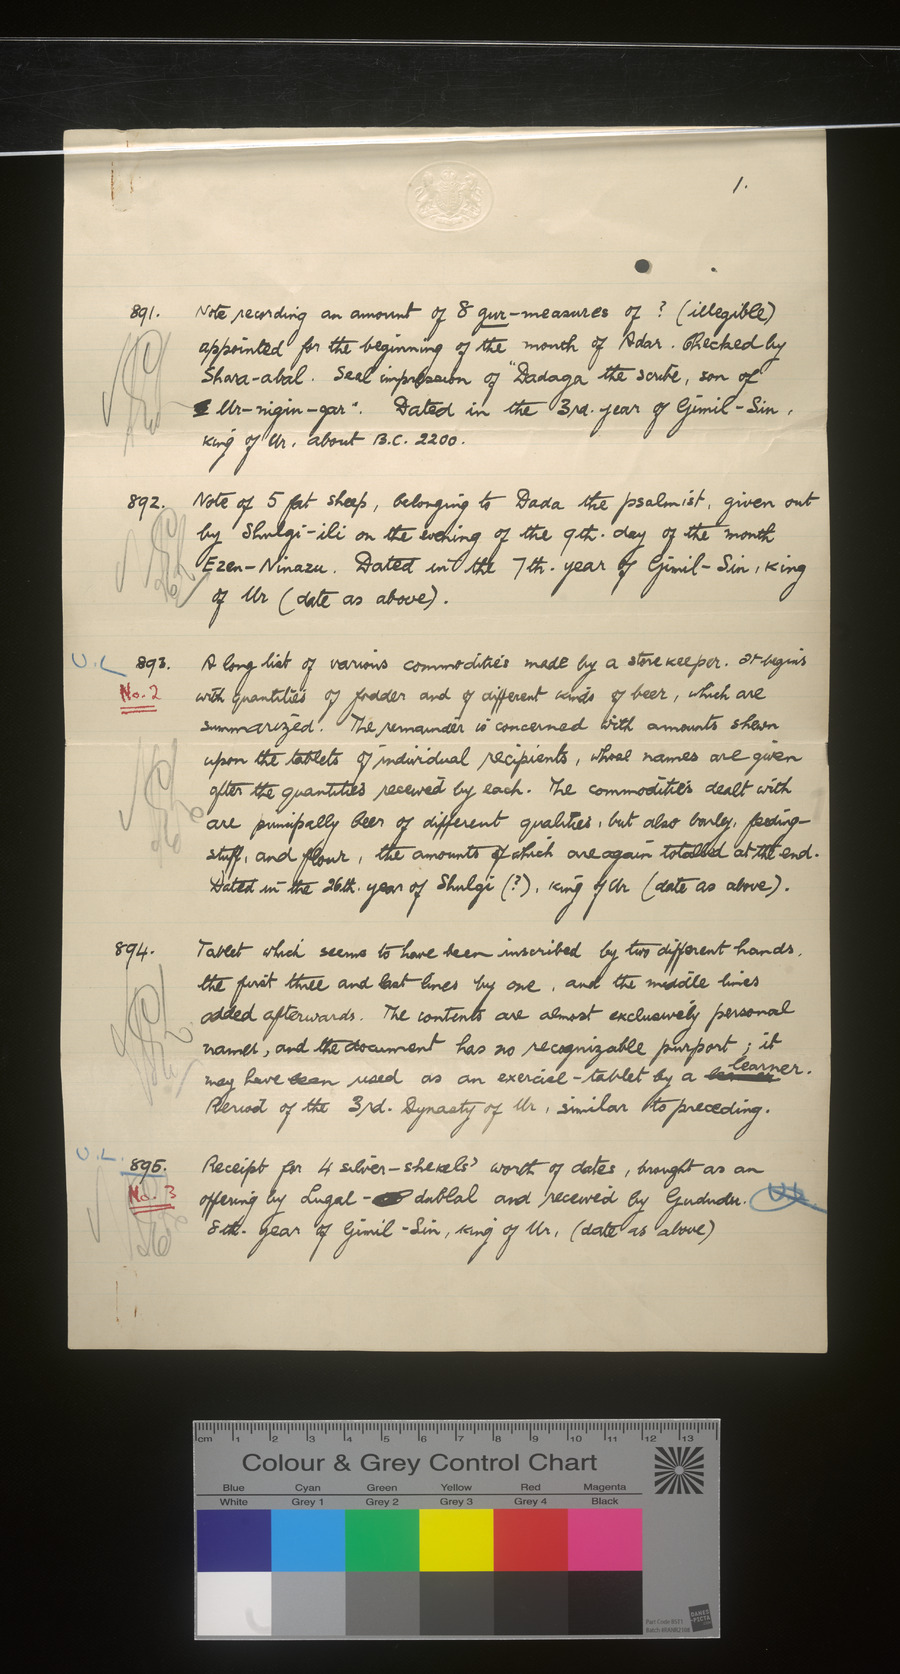 1.
891. Note recording an amount of 8 gur-measures of ? (illegible)
appointed for the beginning of the month of Adar. Checked by
Shara-abal. Seal impression of "Dadaga the scribe, son of
Ur-nigin-gar". Dated in the 3rd. year of Gimil-Sin,
king of Ur, about B.C. 2200.
892. Note of 5 fat sheep, belonging to Dada the psalmist, given out
by Shulgi-ili on the evening of the 9th. day of the month
Ezen-Ninazu. Dated in the 7th. year of Gimil-Sin, king
of Ur (date as above).
U.L 893. A long list of various commodities made by a storekeeper. It begins
No. 2 with quantities of fodder and of different kinds of beer, which are
summarized. The remainder is concerned with amounts shewn
upon the tablets of individual recipients, whose names are given
after the quantities received by each. The commodities dealt with
are principally beer of different qualities, but also barley, feeding-
stuff, and flour, the amounts of which are again totalled at the end.
Dated in the 26th. year of Shulgi (?), king of Ur (date as above).
894. Tablet which seems to have been inscribed by two different hands,
the first three and last lines by one, and the middle lines
added afterwards. The contents are almost exclusively personal
names, and the document has no recognizable purport; it
may have been used as an exercise-tablet by a learner.
Period of the 3rd. Dynasty of Ur, similar to preceding.
U.L. 895. Receipt for 4 silver-shekels' worth of dates, brought as an
No. 3 offering by Lugal-dablal and received by Gududu.
8th. year of Gimil-Sin, king of Ur, (date as above)
cm 1 2 3 4 5 6 7 8 9 10 11 12 13
Colour & Grey Control Chart
Blue Cyan Green Yellow Red Magenta
White Grey 1 Grey 2 Grey 3 Grey 4 Black